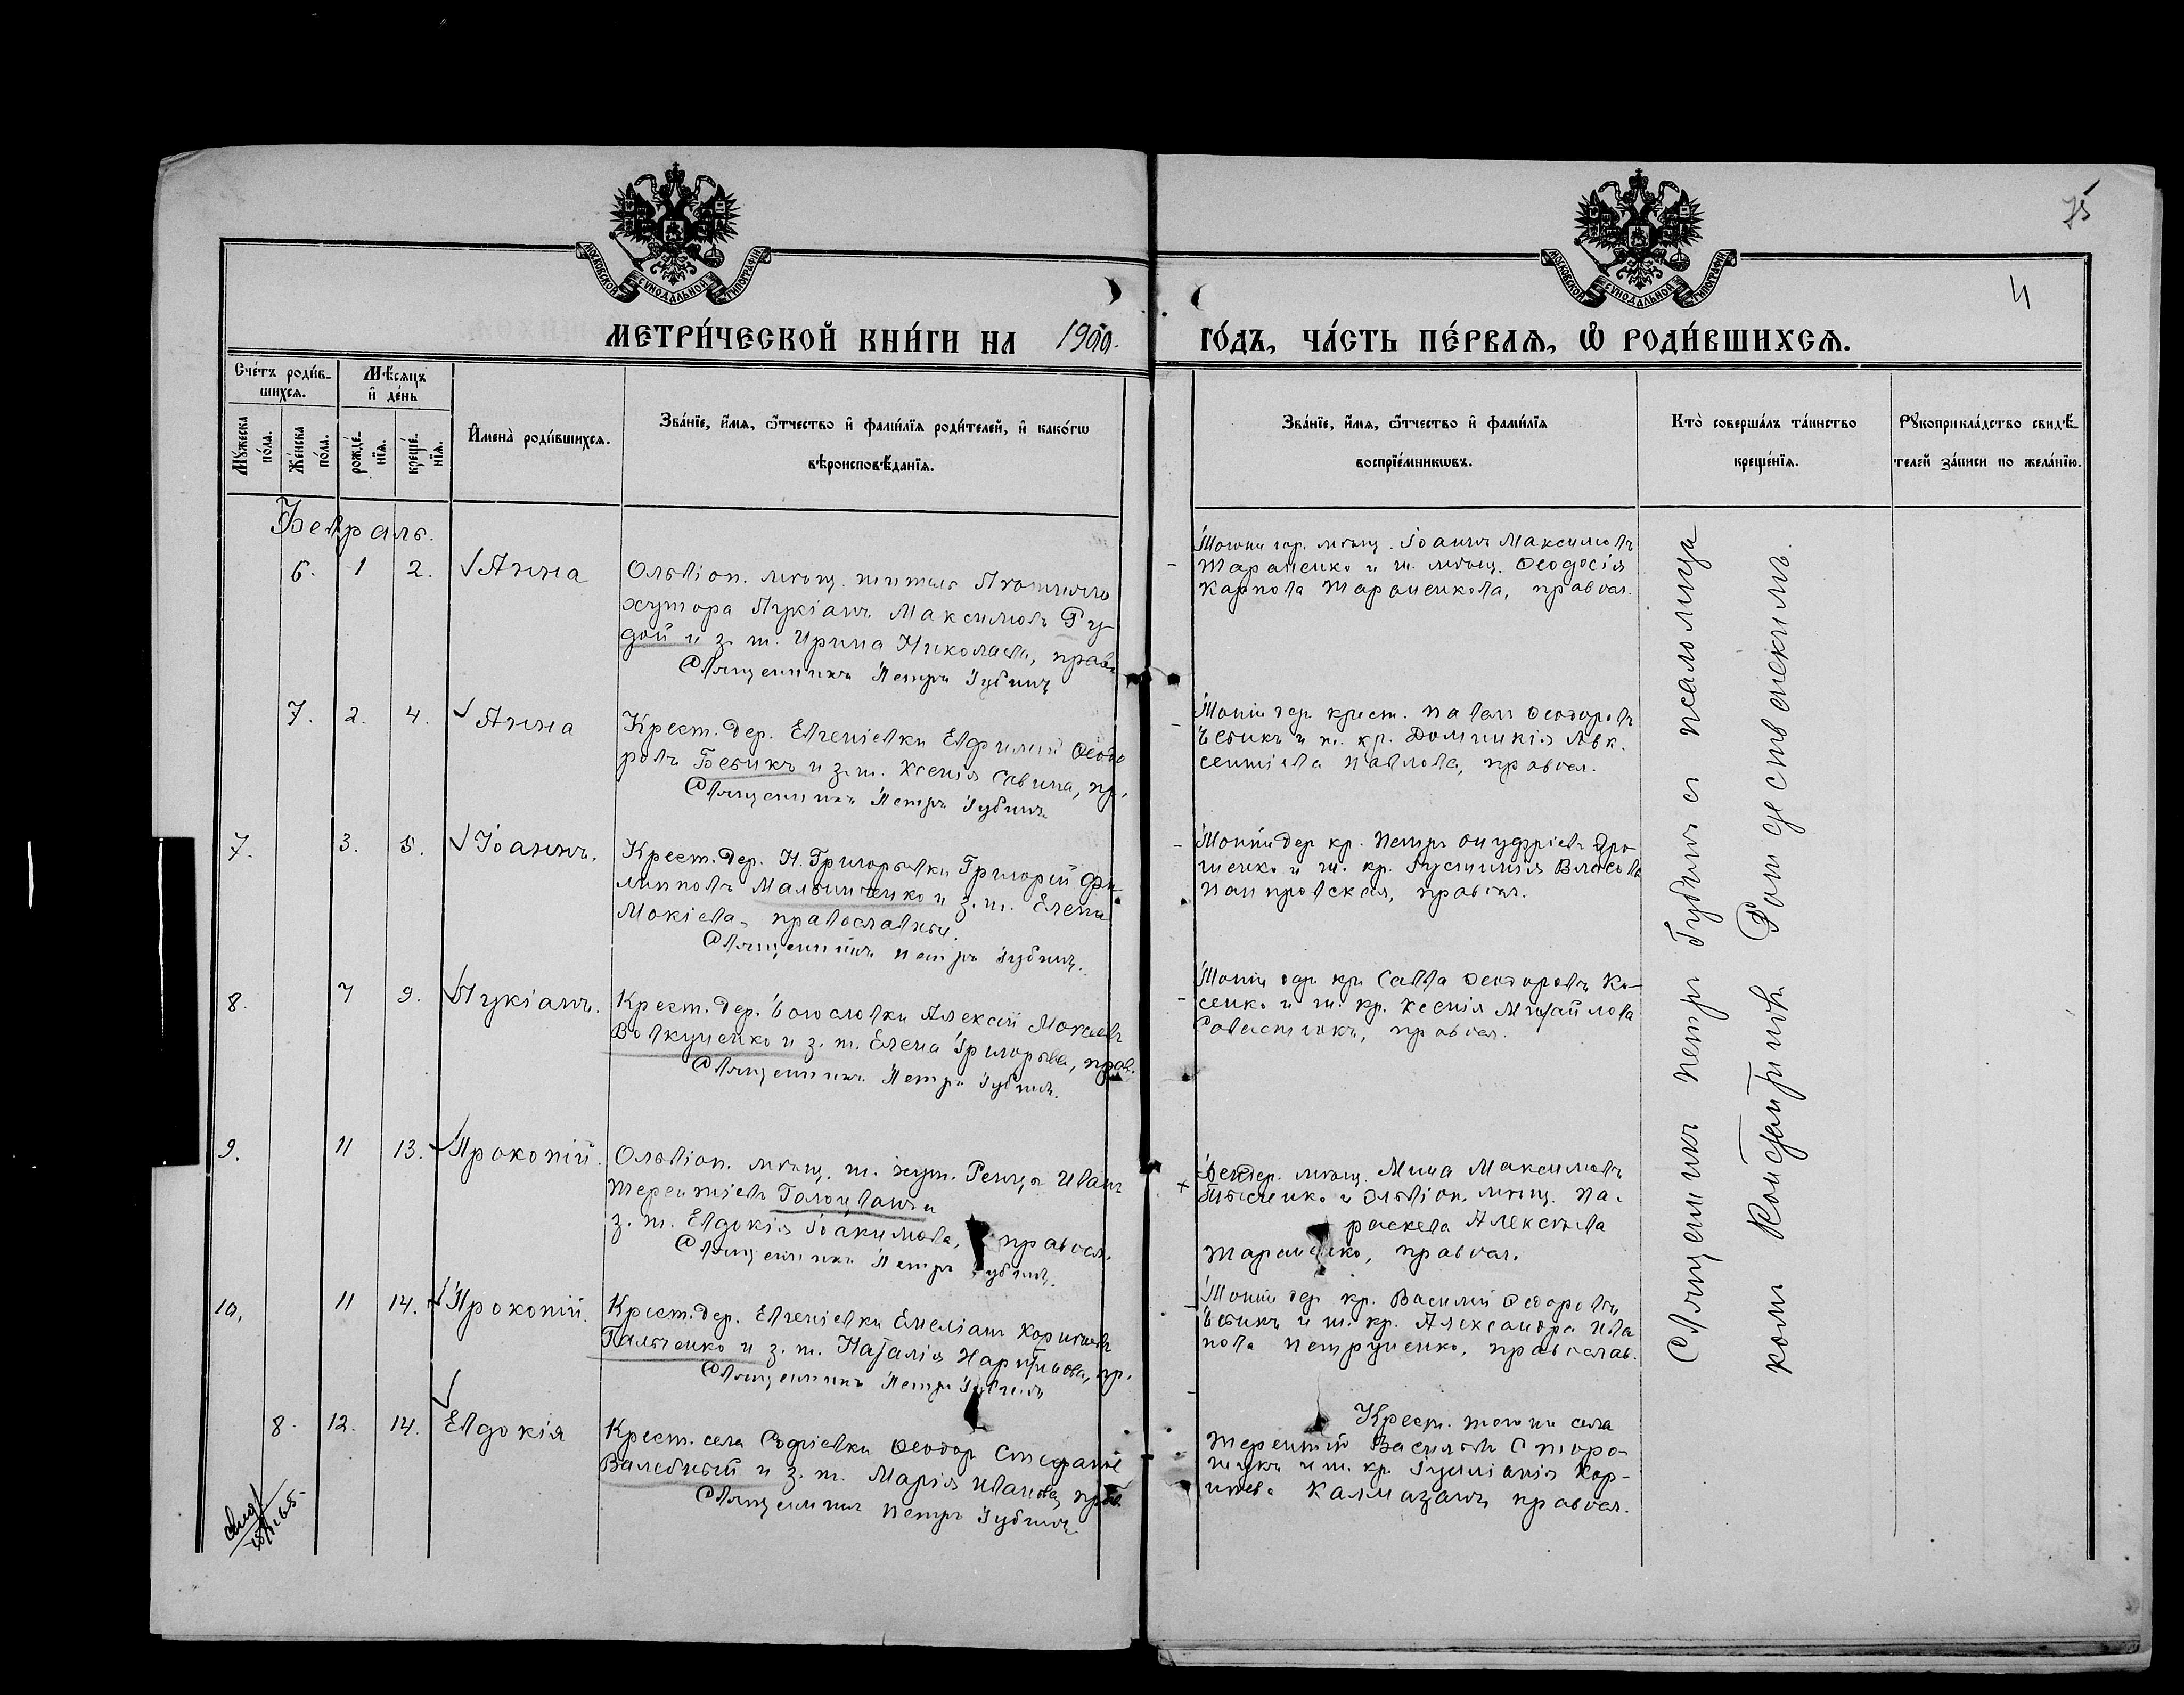 75
4
МОСКОВСКОЙ СѴНОДАЛЬНОЙ ТИПОГРАФІИ
МОСКОВСКОЙ СѴНОДАЛЬНОЙ ТИПОГРАФІИ
МЕТРИ́ЧЕСКОЙ КНИ́ГИ НА 1900. ГО́ДЪ, ЧА́СТЬ ПЕ́РВАЯ, Ѡ РОДИ́ВШИХСЯ.
Сче́тъ роди́в-
шихся.
Мѣ́сяцъ
и де́нь
Мꙋ́жеска
по́ла.
Же́нска
по́ла.
рожде́-
нїя.
креще́-
нїя.
Имена̀ роди́вшихся.
Зва́нїе, и́мя, ѻ́тчество и фами́лїя роди́телей, и како́гѡ
вѣроисповѣ́данїя.
Зва́нїе, и́мя, ѻ́тчество и фами́лїя
воспрїе́мникѡвъ.
Кто̀ соверша́лъ та́инство
креще́нїя.
Рꙋкоприкла́дство свидѣ́-
телей за́писи по жела́нїю.
Февраль.
6. 1 2. Анна
Ольвіоп. мѣщ. житель
хутора Лукіанъ Максимовъ Гу-
дой и з. ж. Ирина Николаева, прав.
Священникъ Петръ Губинъ
Іоаннъ Максимовъ
Тараненко и ж. мѣщ. Ѳеодосія
Карпова Тараненкова, правосл.
7. 2. 4. Анна
Крест. дер. Евгеніевки Евфимій Ѳеодо
ровъ Бебикъ и з. ж. Ксенія Савина, пр.
Священникъ Петръ Губинъ
Той же дер. крест. Павелъ Ѳеодоровъ
Бебикъ и ж. кр. Домникія Авк.
сентіева Павлова, правосл.
7. 3. 5. Іоаннъ.
Крест. дер. Н. Григорьевки Григорій Фи-
липповъ Мальниченко и з. ж. Елена
Мокіева, православные.
Священникъ Петръ Губинъ.
Той же дер кр. Петръ Онуфріевъ
и ж. кр. Іустинія Власова
правосл.
8. 7 9. Лукіанъ.
Крест. дер. Богословки Алексій Мокіевъ
Вовкученко и з. ж. Елена Григорьева, прав.
Священникъ Петръ Губинъ.
Той же дер. кр. Савва Ѳеодоровъ Ко-
сенко и ж. кр. Ксенія Михайлова
правосл.
9. 11 13. Прокопій.
Ольвіоп. мѣщ. ж. хут. Иванъ
Терентіевъ Голованъ и
з. ж. Евдокія Іоакимова, правосл.
Священникъ Петръ Губинъ.
мѣщ. Мина Максимовъ
и Ольвіоп. мѣщ. Па-
раскева Алексѣева
Тараненко, правосл.
10. 11 14. Прокопій.
Крест. дер. Евгеніевки Емеліанъ Корнѣевъ
Гальченко и з. ж. Наталія Харитонова, пр.
Священникъ Петръ Губинъ
Той же дер кр. Василій Ѳеодоровъ
Бебикъ и ж. кр. Александра Ива
нова Петрученко, православ.
8. 12. 14. Евдокія
Крест. села Софіевки Ѳеодоръ Стефановъ
и з. ж. Марія Иванова, прав.
Священникъ Петръ Губинъ
Крест. того же села
Терентій Васильевъ Сторо-
жукъ и ж. кр. Іуліанія Кор-
нѣева Калмазанъ, правосл.
Священникъ Петръ Губинъ съ псаломщи
комъ Рождественскимъ.